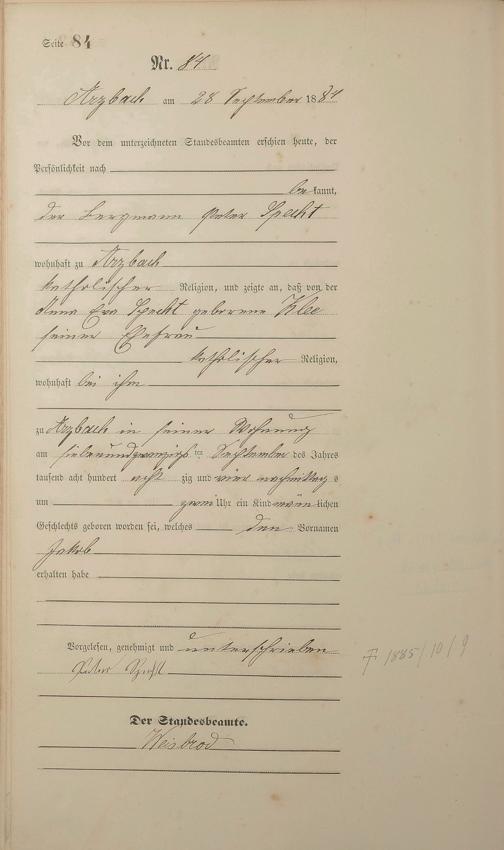 Seite 84
Nr. 84
Arzbach am 28 September 1884
Vor dem unterzeichneten Standesbeamten erschien heute, der
Persönlichkeit nach
bekannt,
der Bergmann Peter Specht
wohnhaft zu Arzbach
katholischer Religion, und zeigte an, daß von der
Anna Eva Specht geborene Klee
seiner Ehefrau
katholischer Religion,
wohnhaft bei ihm
zu Arzbach in seiner Wohnung
am siebenundzwanzigsten September des Jahres
tausend acht hundert achtzig und vier nachmittags
um zwei Uhr ein Kind männlichen
Geschlechts geboren worden sei, welches den Vornamen
Jakob
erhalten habe
Vorgelesen, genehmigt und unterschrieben
Peter Specht
† 1885/10/9
Der Standesbeamte.
Weisbrod